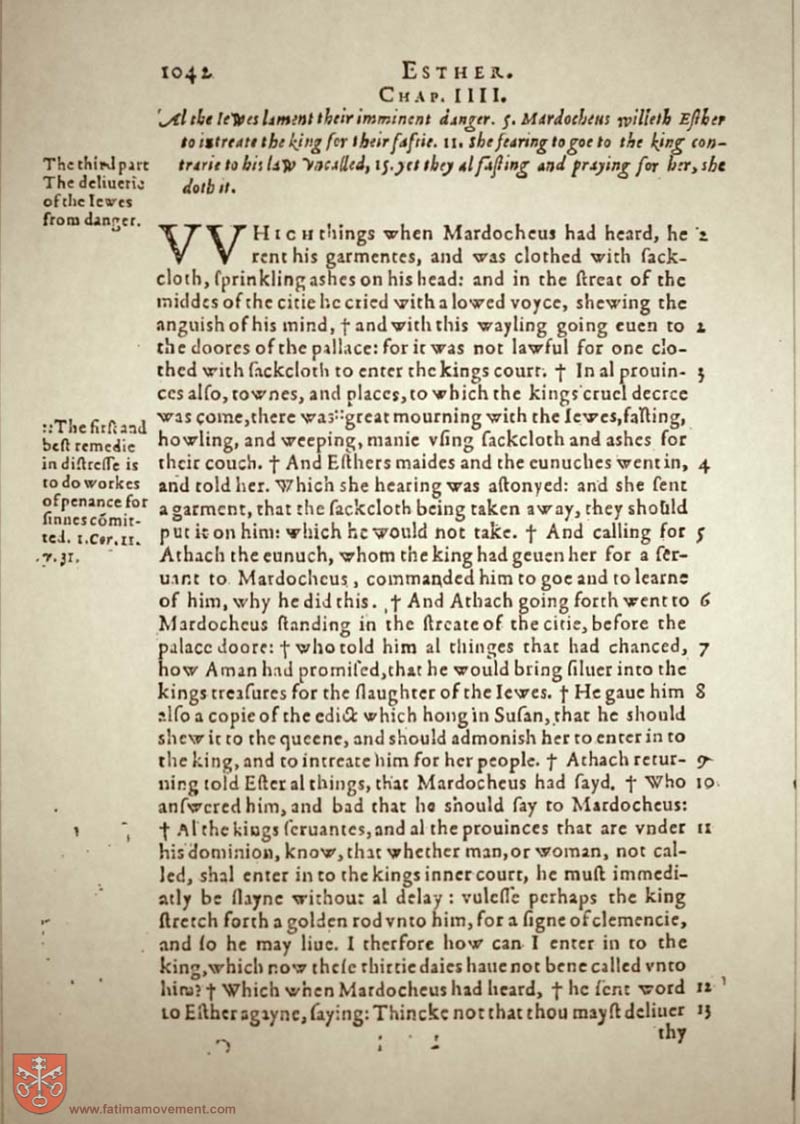 1042 ESTHER.
CHAP. IIII.
Al the Iewes lament their imminent danger. 5. Mardocheus willeth Eſther
to intreate the king for their ſaftie. 11. She fearing to goe to the king con-
trarie to his law vncalled, 15. yet they al faſting and praying for her, she
doth it.
The third part
The deliuerie
of the Iewes
from danger.
VVHICH things when Mardocheus had heard, he
rent his garmentes, and was clothed with ſack-
cloth, ſprinkling ashes on his head: and in the ſtreat of the
middes of the citie he cried with a lowed voyce, shewing the
anguish of his mind, † and with this wayling going euen to 2
the doores of the pallace: for it was not lawful for one clo-
thed with ſackcloth to enter the kings court. † In al prouin- 3
ces alſo, townes, and places, to which the kings cruel decree
was come, there was :: great mourning with the Iewes, faſting,
howling, and weeping, manie vſing ſackcloth and ashes for
their couch. † And Eſthers maides and the eunuches went in, 4
and told her. Which she hearing was aſtonyed: and she ſent
a garment, that the ſackcloth being taken away, they should
put it on him: which he would not take. † And calling for 5
Athach the eunuch, whom the king had geuen her for a ſer-
uant to Mardocheus, commanded him to goe and to learne
of him, why he did this. † And Athach going forth went to 6
Mardocheus ſtanding in the ſtreate of the citie, before the
palace doore: † who told him al thinges that had chanced, 7
how Aman had promiſed, that he would bring ſiluer into the
kings treaſures for the ſlaughter of the Iewes. † He gaue him 8
alſo a copie of the edict which hong in Suſan, that he should
shew it to the queene, and should admonish her to enter in to
the king, and to intreate him for her people. † Athach retur- 9
ning told Eſter al things, that Mardocheus had ſayd. † Who 10
anſwered him, and bad that he should ſay to Mardocheus:
† Al the kings ſeruantes, and al the prouinces that are vnder 11
his dominion, know, that whether man, or woman, not cal-
led, shal enter in to the kings inner court, he muſt immedi-
atly be ſlayne without al delay: vnleſſe perhaps the king
ſtretch forth a golden rod vnto him, for a ſigne of clemencie,
and ſo he may liue. I therfore how can I enter in to the
king, which now theſe thirtie daies haue not bene called vnto
him? † Which when Mardocheus had heard, † he ſent word 12
to Eſther agayne, ſaying: Thincke not that thou mayſt deliuer 13
thy
:: The firſt and
beſt remedie
in diſtreſſe is
to do workes
of penance for
ſinnes cõmit-
ted. 1. Cor. 11.
v. 31.
www.fatimamovement.com